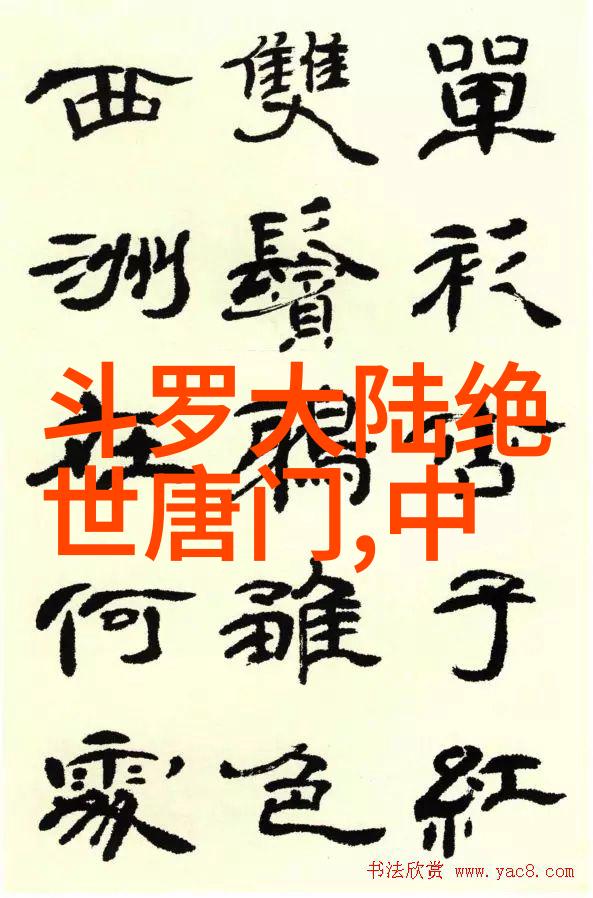 單衫杏子紅
雙鬢鴉雛色
西洲在何處
斗罗大陆绝
世唐门,中
书法欣赏 www.yac8.com